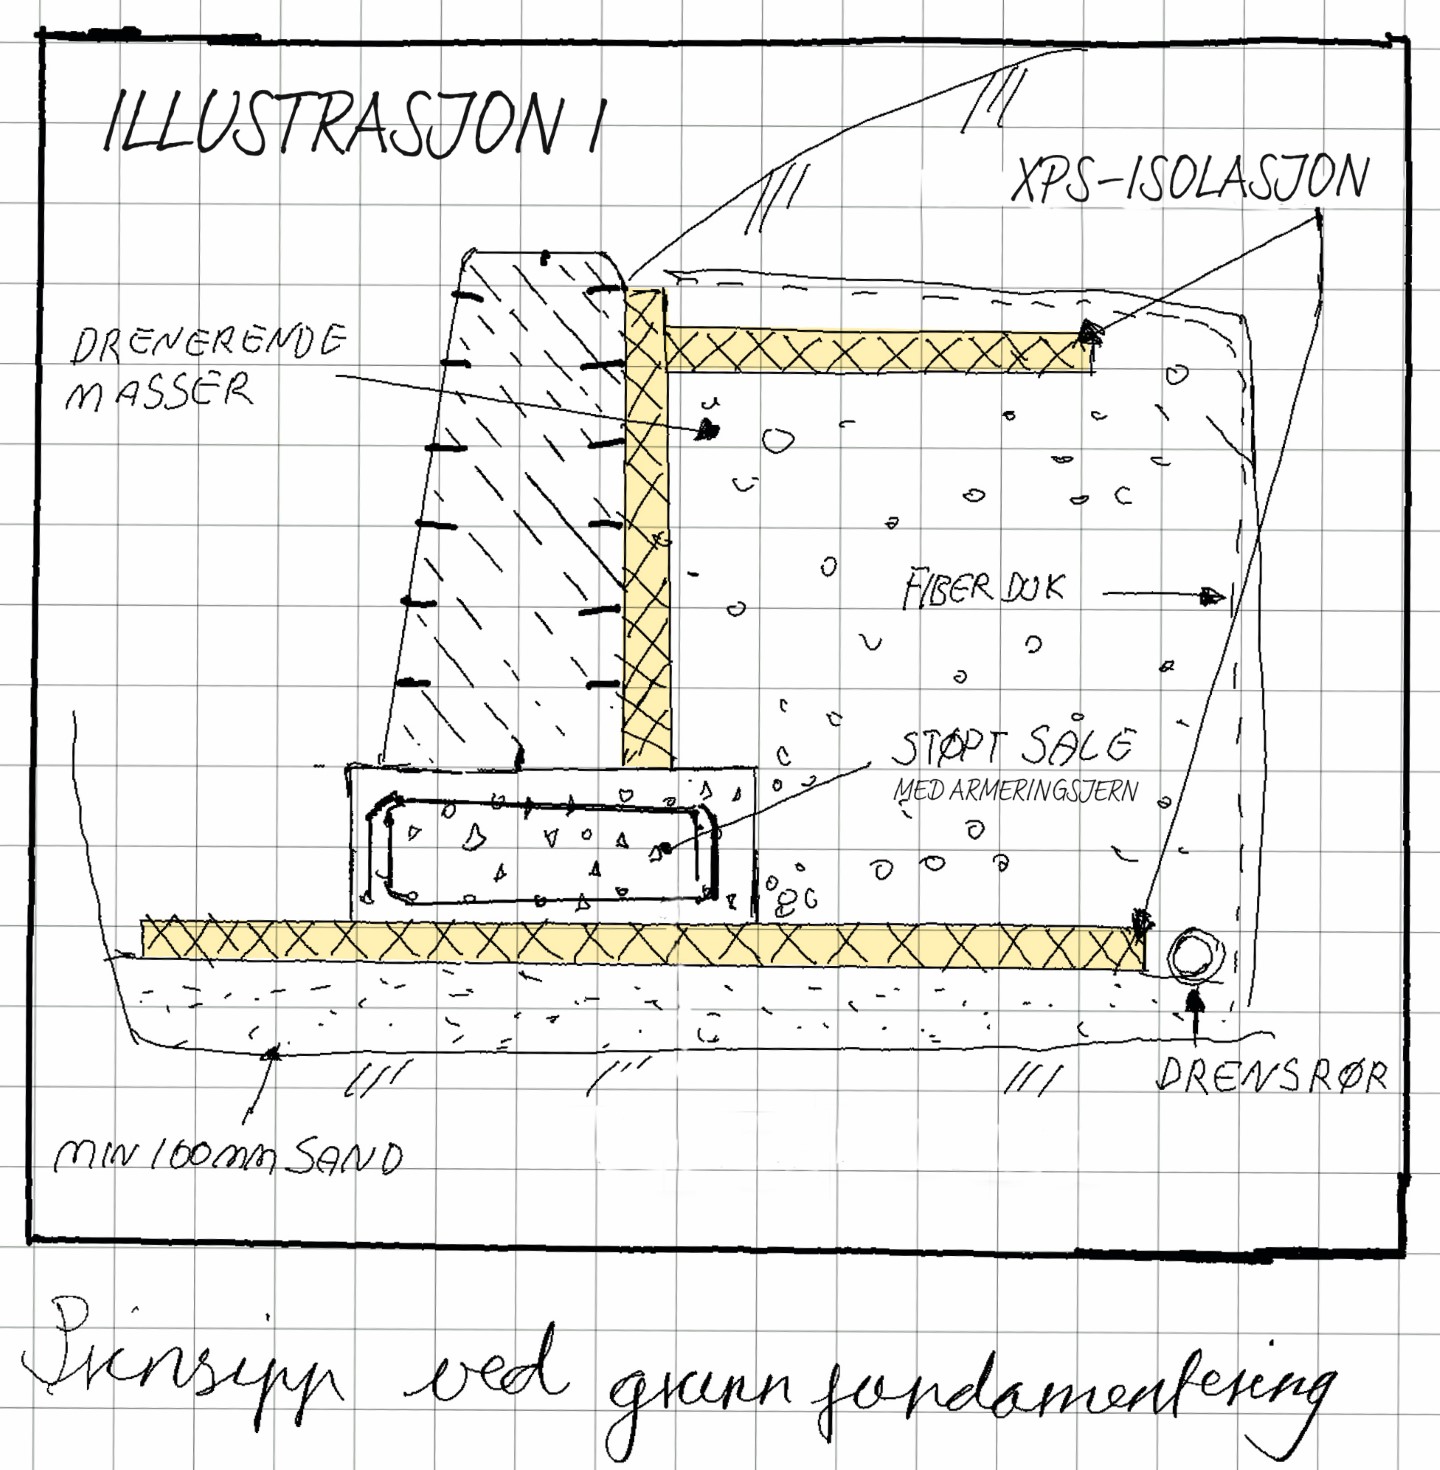 ILLUSTRASJON 1
XPS-ISOLASJON
DRENERENDE
MASSER
FIBERDUK
STØPT SÅLE
MED ARMERINGSJERN
DRENSRØR
MIN 100mm SAND
Prinsipp ved grunnfundamentering